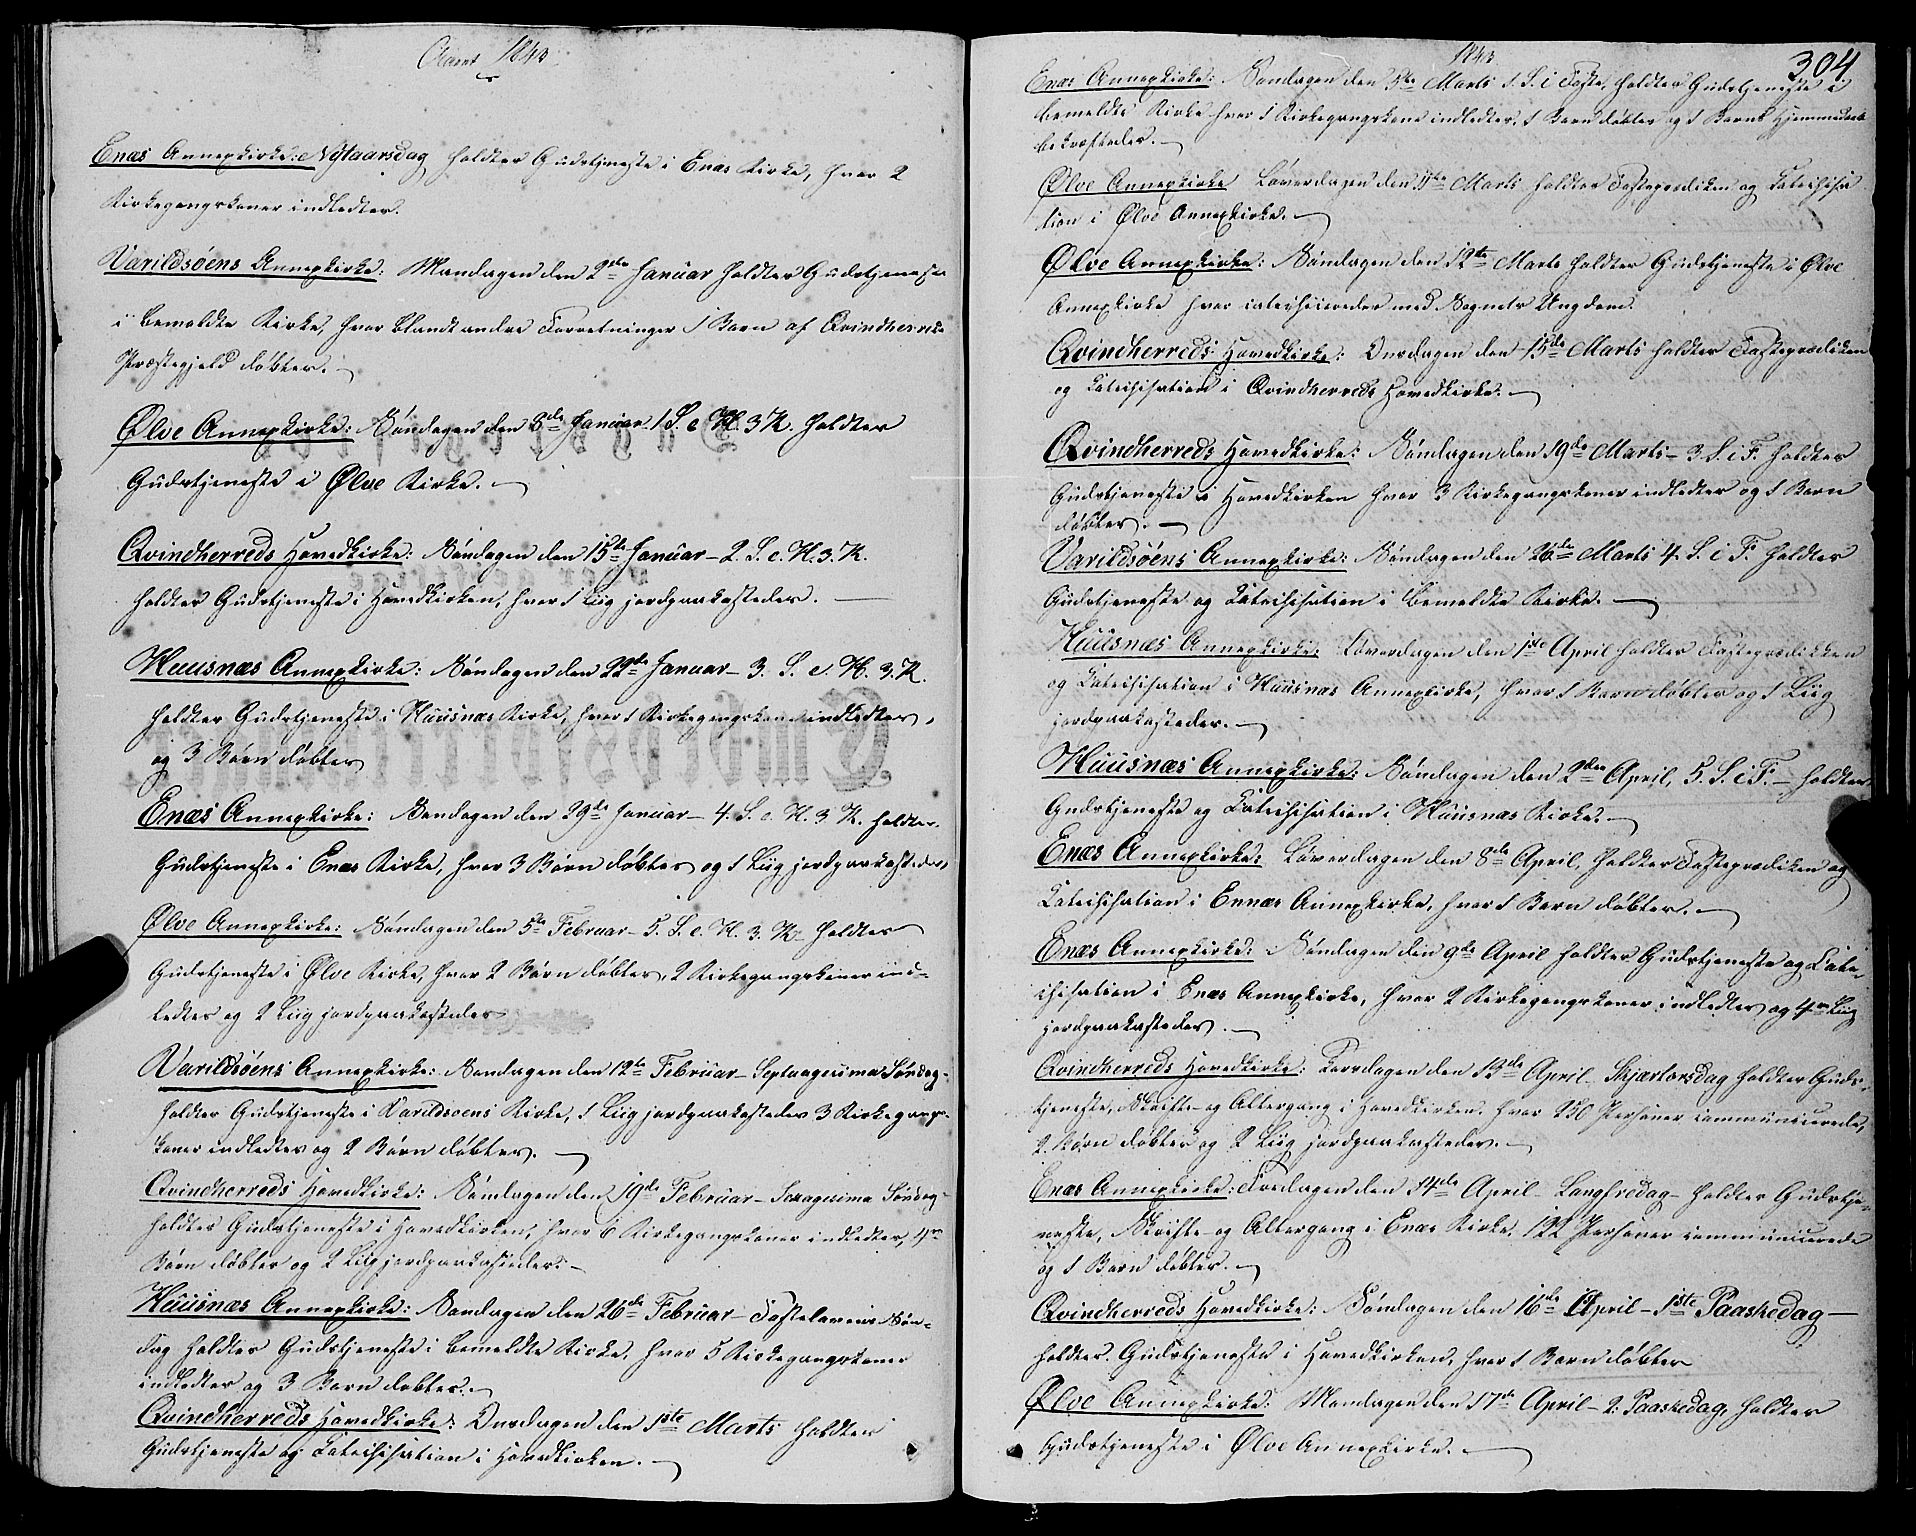 Aaret 1843.
Enæs Annexkirke: Nytaarsdag holdtes Gudstjeneste i Enæs Kirke, hvor 2
Kirkegangskoner indledtes.
Varildsøens Annexkirke: Mandagen den 2den Januar holdtes Gudstjeneste
i bemeldte Kirke, hvor blandt andre Forretninger 1 Barn af Qvindherreds
Præstegjeld døbtes.
Ølve Annexkirke: Søndagen den 8de Januar 1 S. e. H. 3 K. holdtes
Gudstjeneste i Ølve Kirke.
Qvindherreds Hovedkirke: Søndagen den 15de Januar – 2. S. e. H. 3. K.
holdtes Gudstjeneste i Hovedkirken, hvor 1 Liig jordpaakastedes.
Huusnæs Annexkirke: Søndagen den 22de Januar – 3. S. e. H. 3. K.
holdtes Gudstjeneste i Huusnæs Kirke, hvor 1 Kirkegangskone indledtes,
og 3 Børn døbtes
Enæs Annexkirke: Søndagen den 29de Januar – 4. S. e. H. 3 K. holdtes
Gudstjeneste i Enæs Kirke, hvor 3 Børn døbtes og 1 Liig jordpaakastedes,
Ølve Annexkirke: Søndagen den 5te Februar – 5. S. e. H. 3. K. holdtes
Gudstjeneste i Ølve Kirke, hvor 2 Børn døbtes, 2 Kirkegangskoner ind-
ledtes og 2 Liig jordpaakastedes
Varildsøens Annexkirke: Søndagen den 12te Februar – Septuagesima Søndag –
holdtes Gudstjeneste i Varildsoens Kirke, 1 Liig jordpaakastedes 3 Kirkegangs-
koner indledtes og 2 Børn døbtes.
Qvindherreds Hovedkirke: Søndagen den 19de Februar – Sexagesima Søndag –
holdtes Gudstjeneste i Hovedkirken, hvor 6 Kirkegangskoner indledtes, 4re
Børn døbtes og 2 Liig jordpaakastedes. –
Huusnæs Annexkirke: Søndagen den 26de Februar – Fastelavens Søn-
dag holdtes Gudstjeneste i bemeldte Kirke, hvor 5 Kirkegangskoner
indledtes og 3 Børn døbtes.
Qvindherreds Hovedkirke: Onsdagen den 1ste Marts holdtes
Gudstjeneste og Catechisation i Hovedkirken.
1843.
304
Enæs Annexkirke: Søndagen den 5te Marts 1. S. i Faste, holdtes Gudstjeneste i
bemeldte Kirke hvor 1 Kirkegangskone indledtes, 1 Barn døbtes og 1 Barns Hjemmedaab
bekræftedes.
Ølve Annexkirke Løverdagen den 11te Marts holdtes Fasteprædiken og Catechisa
tion i Ølve Annexkirke.
Ølve Annexkirke: Søndagen den 12te Marts holdtes Gudstjeneste i Ølve
Annexkirke hvor catechiseredes med Sognets Ungdom.
Qvindherreds Hovedkirke: Onsdagen den 15de Marts holdtes Fasteprædiken
og Catechisation i Qvindherreds Hovedkirke.
Qvindherreds Hovedkirke: Søndagen den 19de Marts – 3. S. i F. holdtes
Gudstjeneste i Hovedkirken hvor 3 Kirkegangskoner indledtes og 1 Barn
døbtes.
Varildsøens Annexkirke: Søndagen den 26de Marts 4. S. i F. holdtes
Gudstjeneste og Catechisation i bemeldte Kirke.
Huusnæs Annexkirke: Løverdagen den 1ste April holdtes Fasteprædikken
og Catechisation i Huusnæs Annexkirke, hvor 1 Barn døbtes og 1 Liig
jordpaakastedes.
Huusnæs Annexkirke: Søndagen den 2den April, 5. S. i F. – holdtes
Gudstjeneste og Catechisation i Huusnæs Kirke.
Enæs Annexkirke: Løverdagen den 8de April, holdtes Fasteprædiken og
Catechisation i Ennæs Annexkirke, hvor 1 Barn døbtes.
Enæs Annexkirke: Søndagen den 9de April holdtes Gudstjeneste og Cate-
chisation i Enæs Annexkirke, hvor 2 Kirkegangskoner indledtes og 4re Liig
jordpaakastedes.
Qvindherreds Hovedkirke: Torsdagen den 13de April – Skjærtorsdag holdtes Guds-
tjeneste, Skrifte- og Altergang i Hovedkirken, hvor 250 Personer communicerede,
2. Børn døbtes og 2 Liig jordpaakastedes.
Enæs Annexkirke: Fredagen den 14de April – Langfredag – holdtes Gudstje-
neste, Skrifte- og Altergang i Enæs Kirke, 122 Personer communicerede
og 1 Barn døbtes.
Qvindherreds Hovedkirke: Søndagen den 16de April – 1ste Paaskedag –
holdtes Gudstjeneste i Hovedkirken, hvor 1 Barn døbtes
Ølve Annexkirke: Mandagen den 17de April – 2: Paaskedag, holdtes
Gudstjeneste i Ølve Annexkirke.